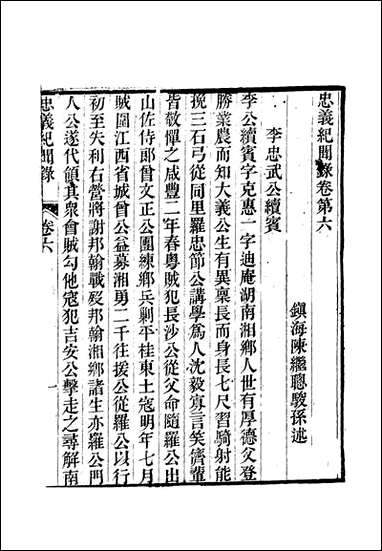 忠義紀聞錄卷第六
鎮海陳繼聰駿孫述
李忠武公續賓
李公續賓字克惠一字迪庵湖南湘鄉人世有厚德父登
勝業農而知大義公生有異稟長而身長七尺習騎射能
挽三石弓從同里羅忠節公講學爲人沈毅寡言笑儕輩
皆敬憚之咸豐二年春粵賊犯長沙公從父命隨羅公出
山佐侍郎曾文正公團練鄉兵剿平桂東土寇明年七月
賊圍江西省城曾公益募湘勇二千往援公從羅公以行
初至失利右營將謝邦翰戰歿邦翰湘鄉諸生亦羅公門
人公遂代領其衆會賊勾他寇犯吉安公擊走之尋解南
忠義紀聞錄
卷六